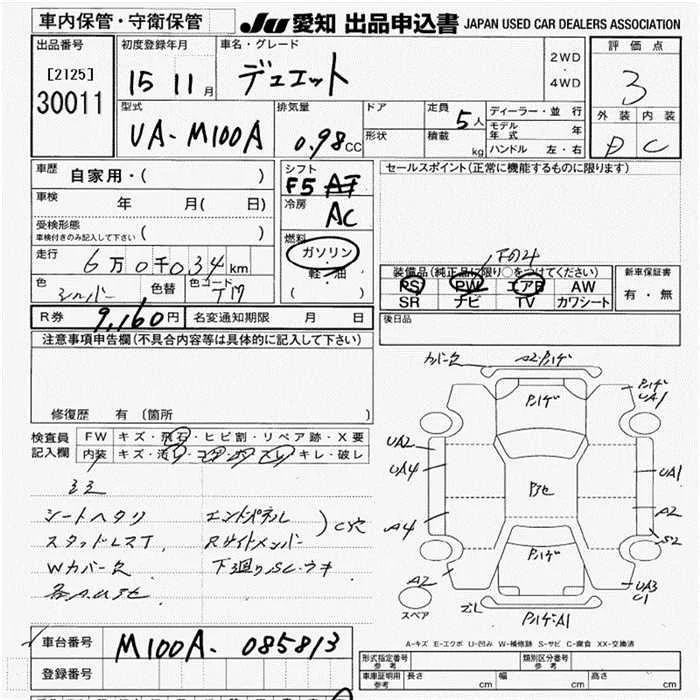 車内保管・守衛保管
JU 愛知 出品申込書 JAPAN USED CAR DEALERS ASSOCIATION
出品番号
[2125]
30011
初度登録年月
15 11月
車名・グレード
デュエット
2WD
・
4WD
評価点
3
外装 内装
D C
型式
UA-M100A
排気量
0.98CC
ドア
形状
定員 5人
積載 kg
ディーラー・並行
モデル年式 年
ハンドル 左・右
車歴 自家用・( )
車検 年 月( 日)
受検形態
車検付きのみ記入して下さい ( )
走行 6万0千034km
色 シルバー 色替 色コード T17
シフト
F5 AT
冷房
AC
燃料
ガソリン
軽・油
( )
セールスポイント(正常に機能するものに限ります)
装備品(純正品に限り○をつけてください)
PS PW エアB AW
SR ナビ TV カワシート
新車保証書
有・無
R券 9,160円 名変通知期限 月 日
後日品
注意事項申告欄(不具合内容等は具体的に記入して下さい)
修復歴 有 (箇所 )
検査員記入欄
FW キズ・飛石・ヒビ割・リペア跡・X要
内装 キズ・汚レ・コゲ・穴・スレ・キレ・破レ
シートヘタリ エンドパネル
スタッドレスT Rサイドメンバー
C穴
Wカバー欠 下廻りSC.ウキ
カバー欠 A2・P.ハゲ
P.ハゲ
P.ハゲ
UA1
UA2
UA4
A4
A2
Pアセ
UA1
A2
S2
P.ハゲ
UA3
C1
スペア
ズレ
P.ハゲ・A1
A-キズ E-エクボ U-凹み W-補修跡 S-サビ C-腐食 XX-交換済
車台番号 M100A-085813
登録番号
形式指定番号 参考
類別区分番号 参考
車庫証明用 参考 長さ cm 幅 cm 高さ cm